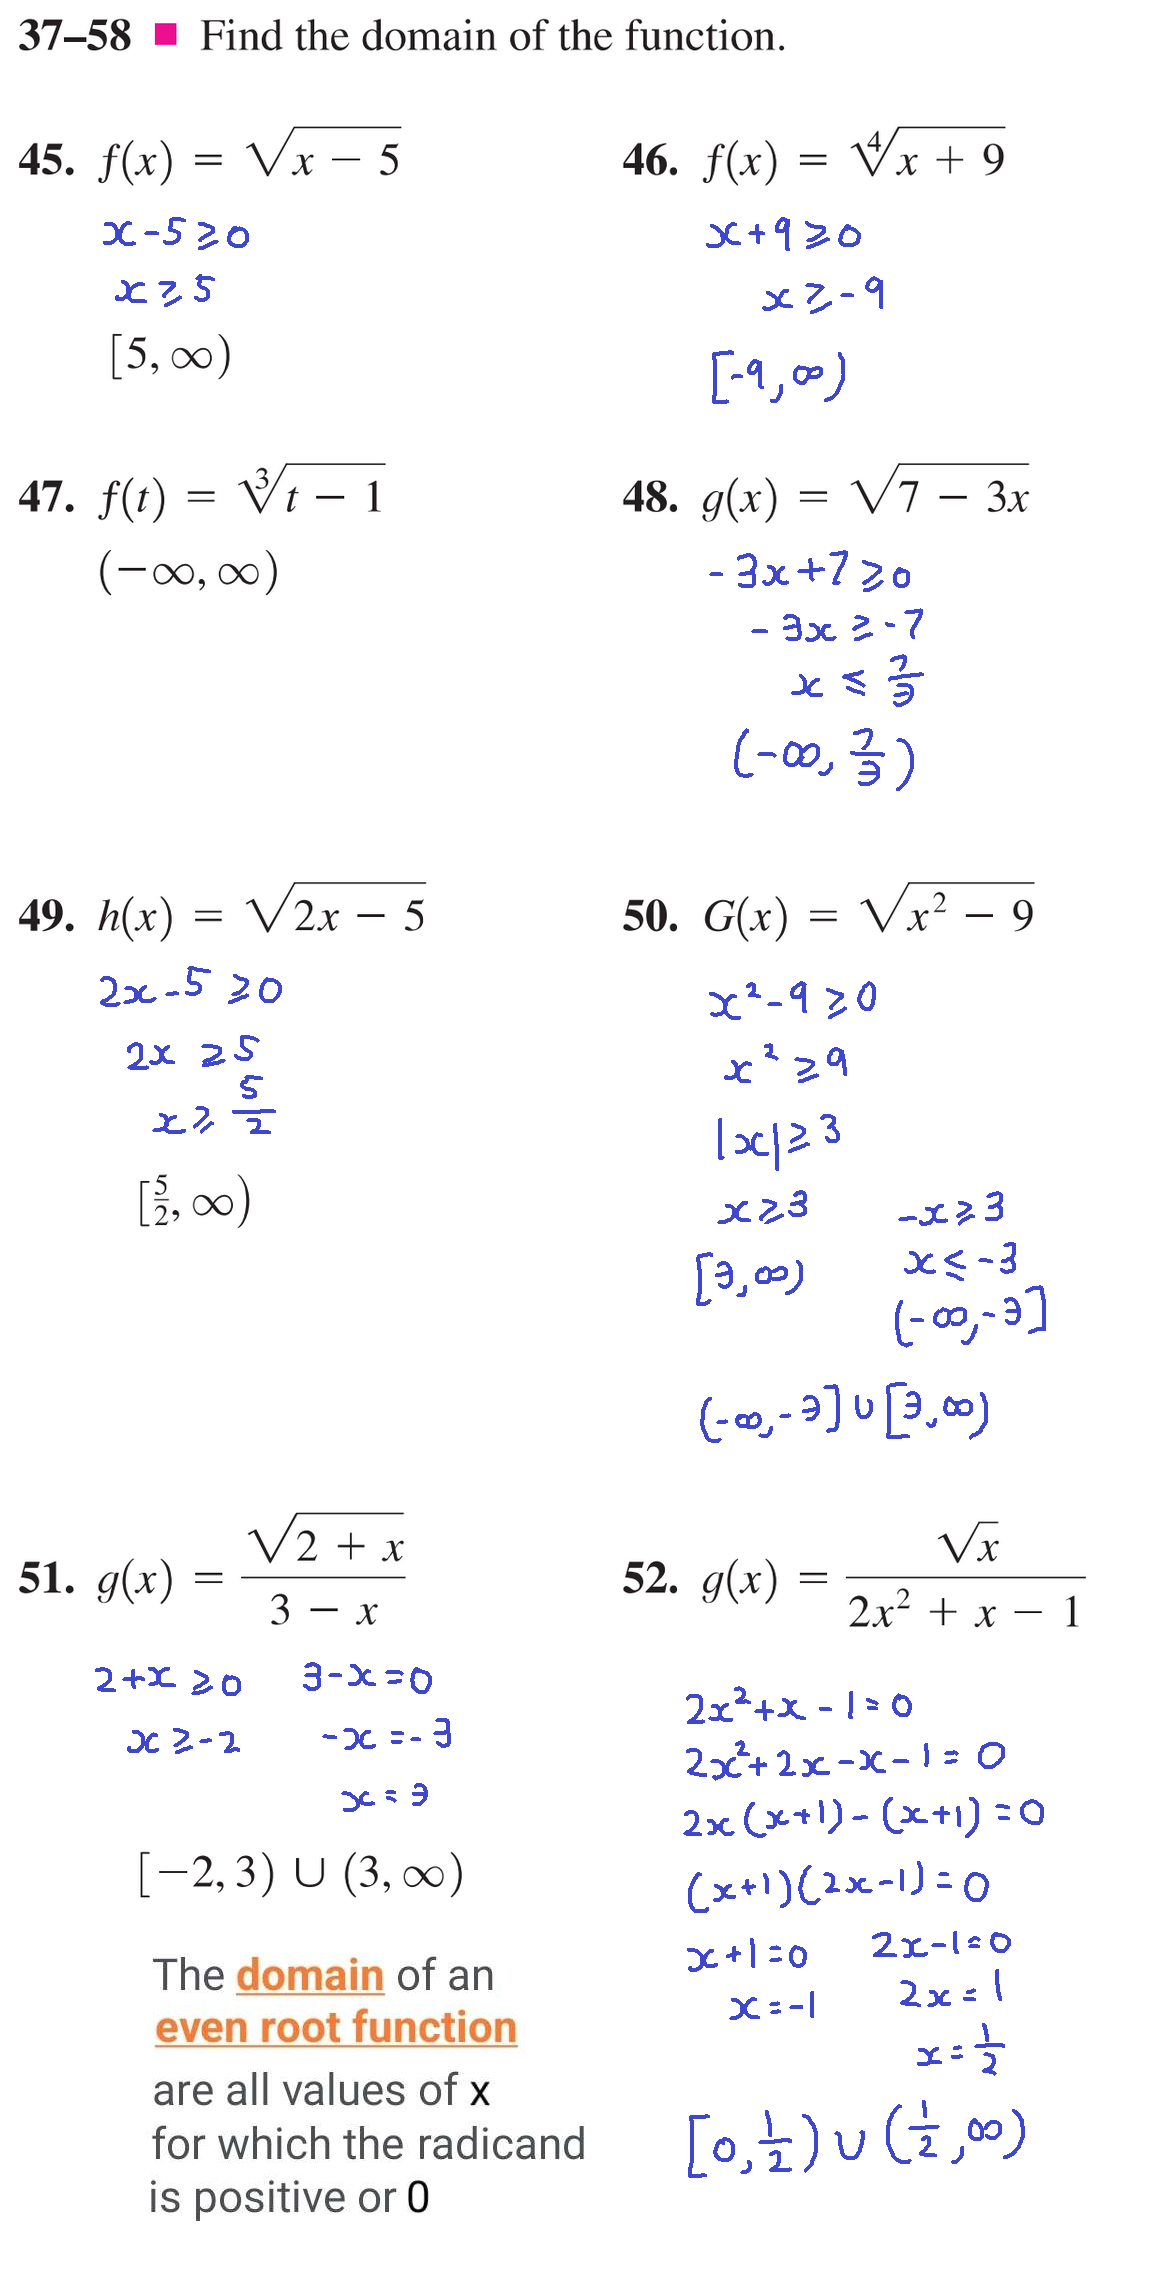 37–58 ■ Find the domain of the function.
45. f(x) = √(x − 5)
x - 5 ≥ 0
x ≥ 5
[5, ∞)
46. f(x) = ∜(x + 9)
x + 9 ≥ 0
x ≥ -9
[-9, ∞)
47. f(t) = ∛(t − 1)
(−∞, ∞)
48. g(x) = √(7 − 3x)
-3x + 7 ≥ 0
-3x ≥ -7
x ≤ 7/3
(-∞, 7/3)
49. h(x) = √(2x − 5)
2x - 5 ≥ 0
2x ≥ 5
x ≥ 5/2
[5/2, ∞)
50. G(x) = √(x² − 9)
x² - 9 ≥ 0
x² ≥ 9
|x| ≥ 3
x ≥ 3 -x ≥ 3
[3, ∞) x ≤ -3
(-∞, -3]
(-∞, -3] ∪ [3, ∞)
51. g(x) = √(2 + x) / (3 − x)
2 + x ≥ 0 3 - x = 0
x ≥ -2 -x = -3
x = 3
[−2, 3) ∪ (3, ∞)
The domain of an
even root function
are all values of x
for which the radicand
is positive or 0
52. g(x) = √x / (2x² + x − 1)
2x² + x - 1 = 0
2x² + 2x - x - 1 = 0
2x(x+1) - (x+1) = 0
(x+1)(2x-1) = 0
x + 1 = 0 2x - 1 = 0
x = -1 2x = 1
x = 1/2
[0, 1/2) ∪ (1/2, ∞)